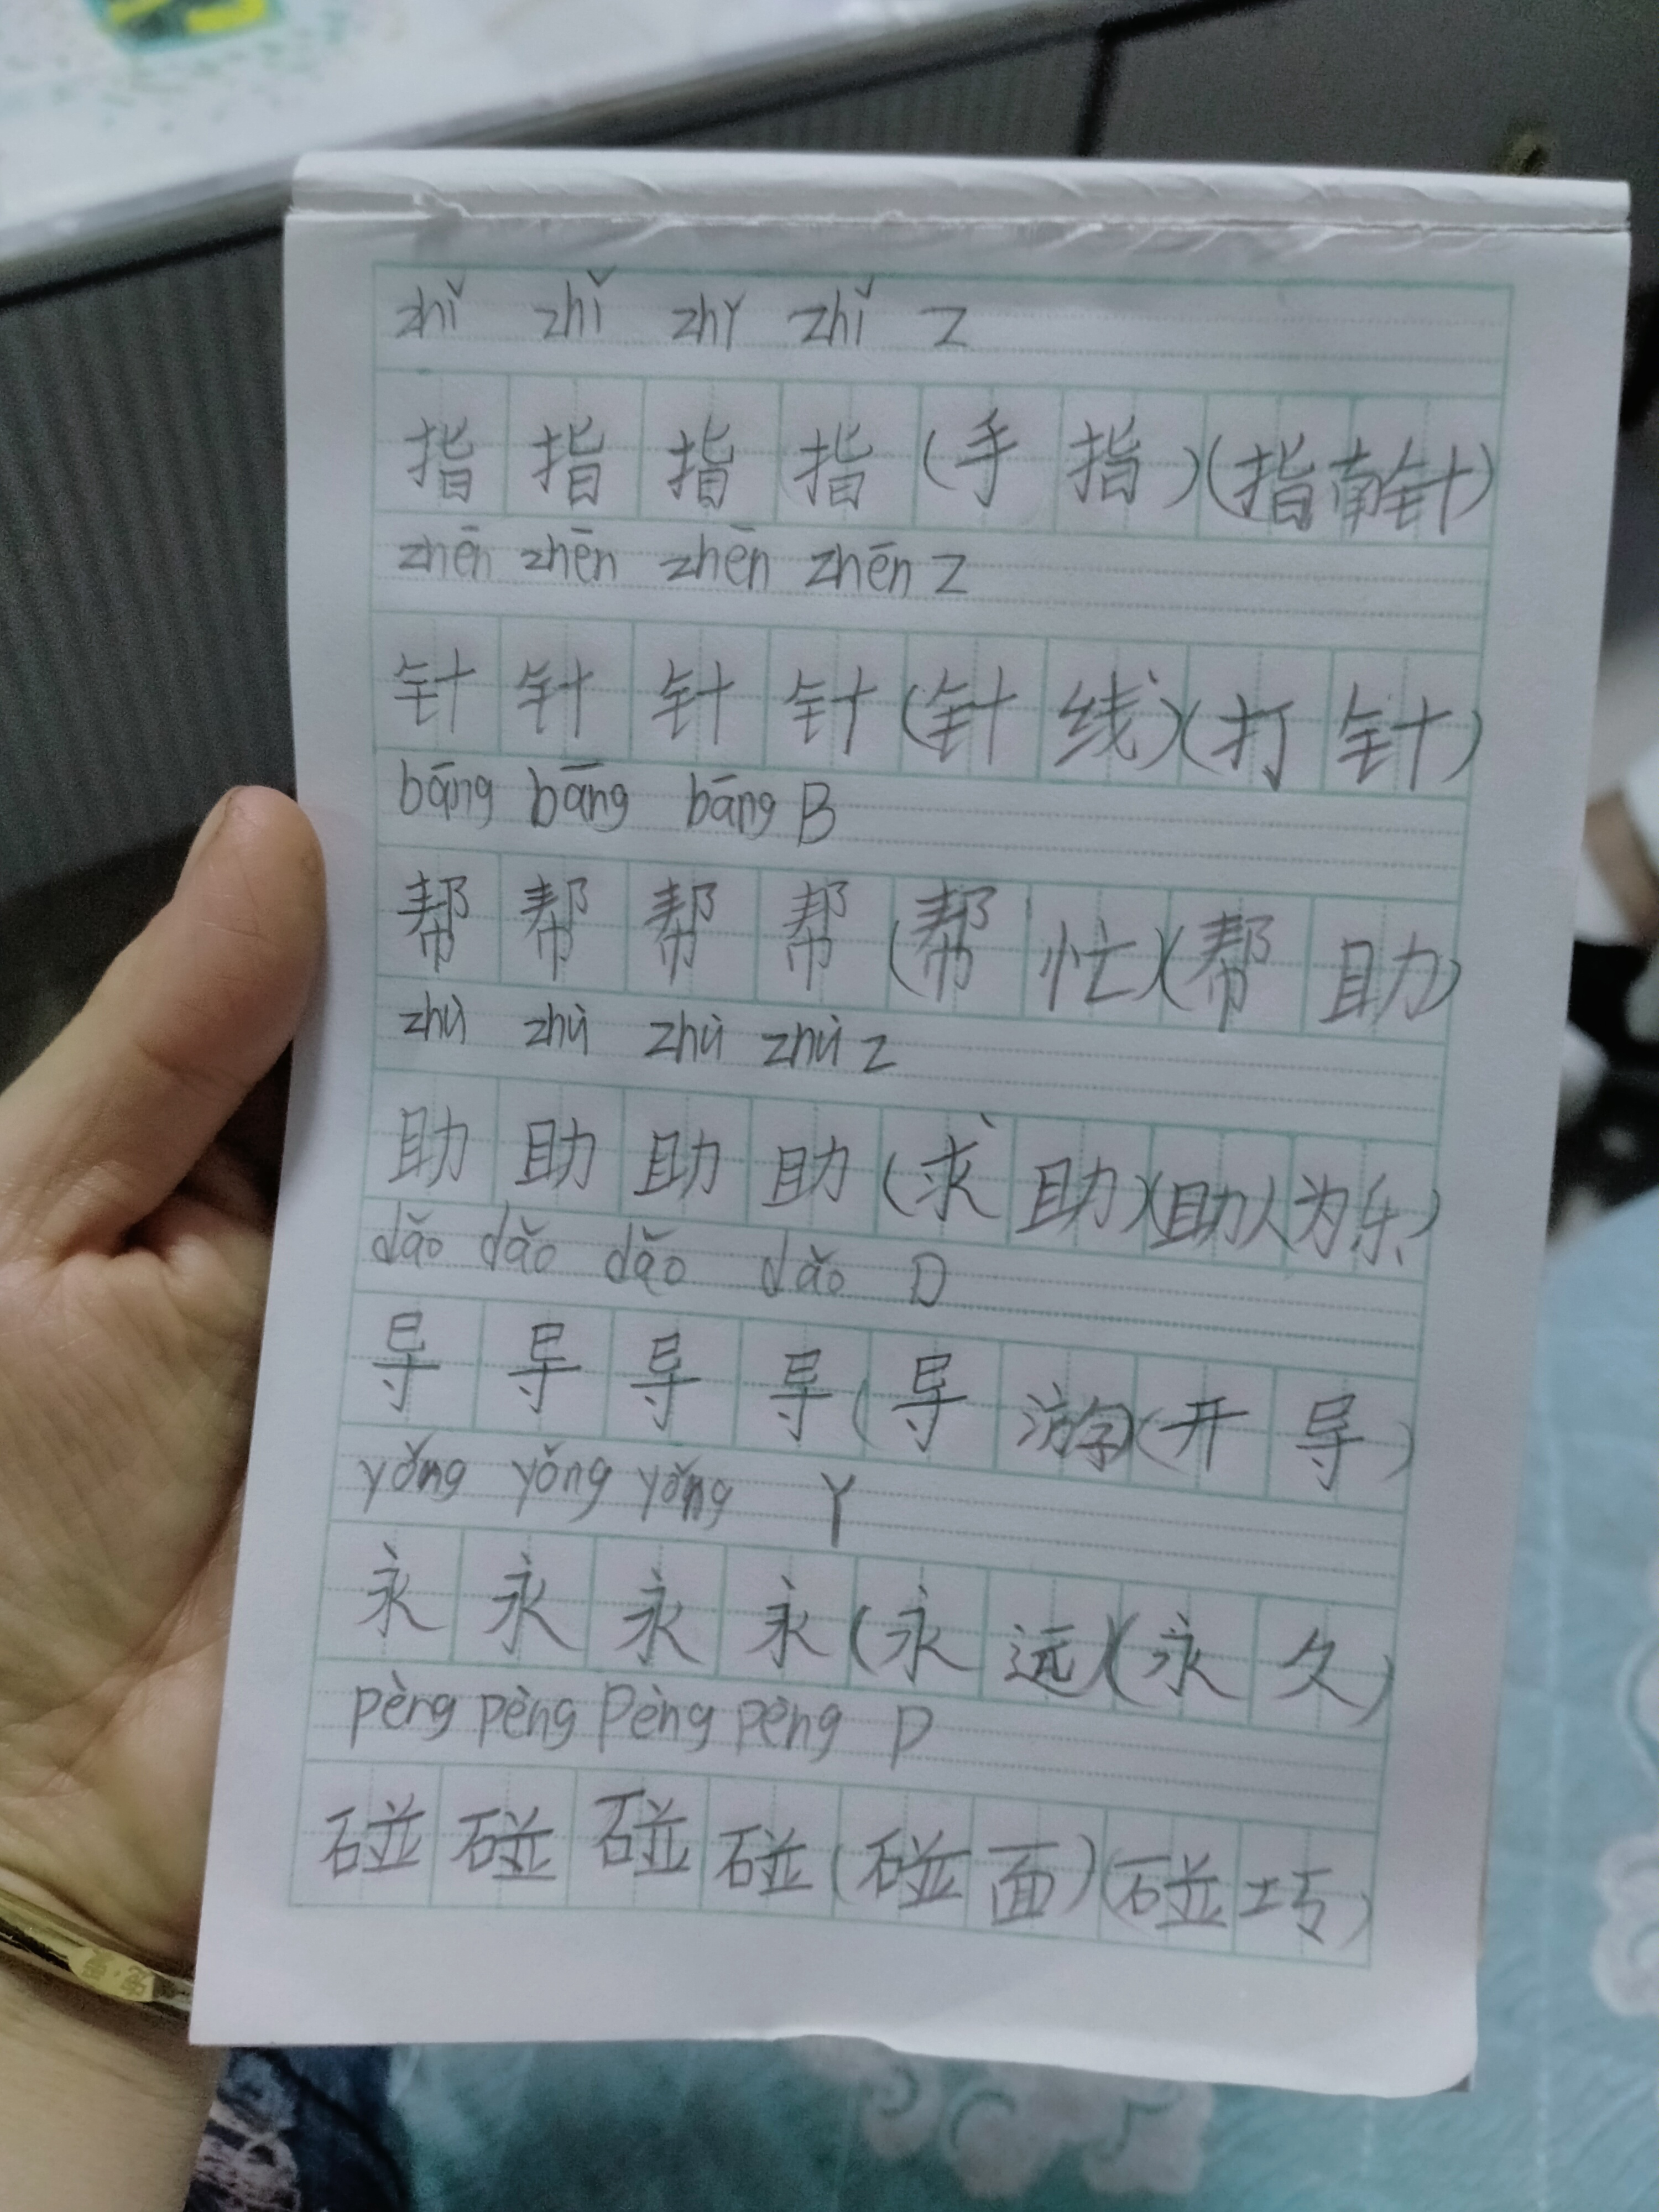 zhǐ zhǐ zhǐ zhǐ Z
指 指 指 指 (手 指)(指南针)
zhēn zhēn zhēn zhēn Z
针 针 针 针 (针 线)(打 针)
bāng bāng bāng B
帮 帮 帮 帮 (帮 忙)(帮 助)
zhù zhù zhù zhù Z
助 助 助 助 (求 助)(助人为乐)
dǎo dǎo dǎo dǎo D
导 导 导 导 (导 游)(开 导)
yǒng yǒng yǒng Y
永 永 永 永 (永 远)(永 久)
pèng pèng pèng pèng P
碰 碰 碰 碰 (碰 面)(碰 巧)